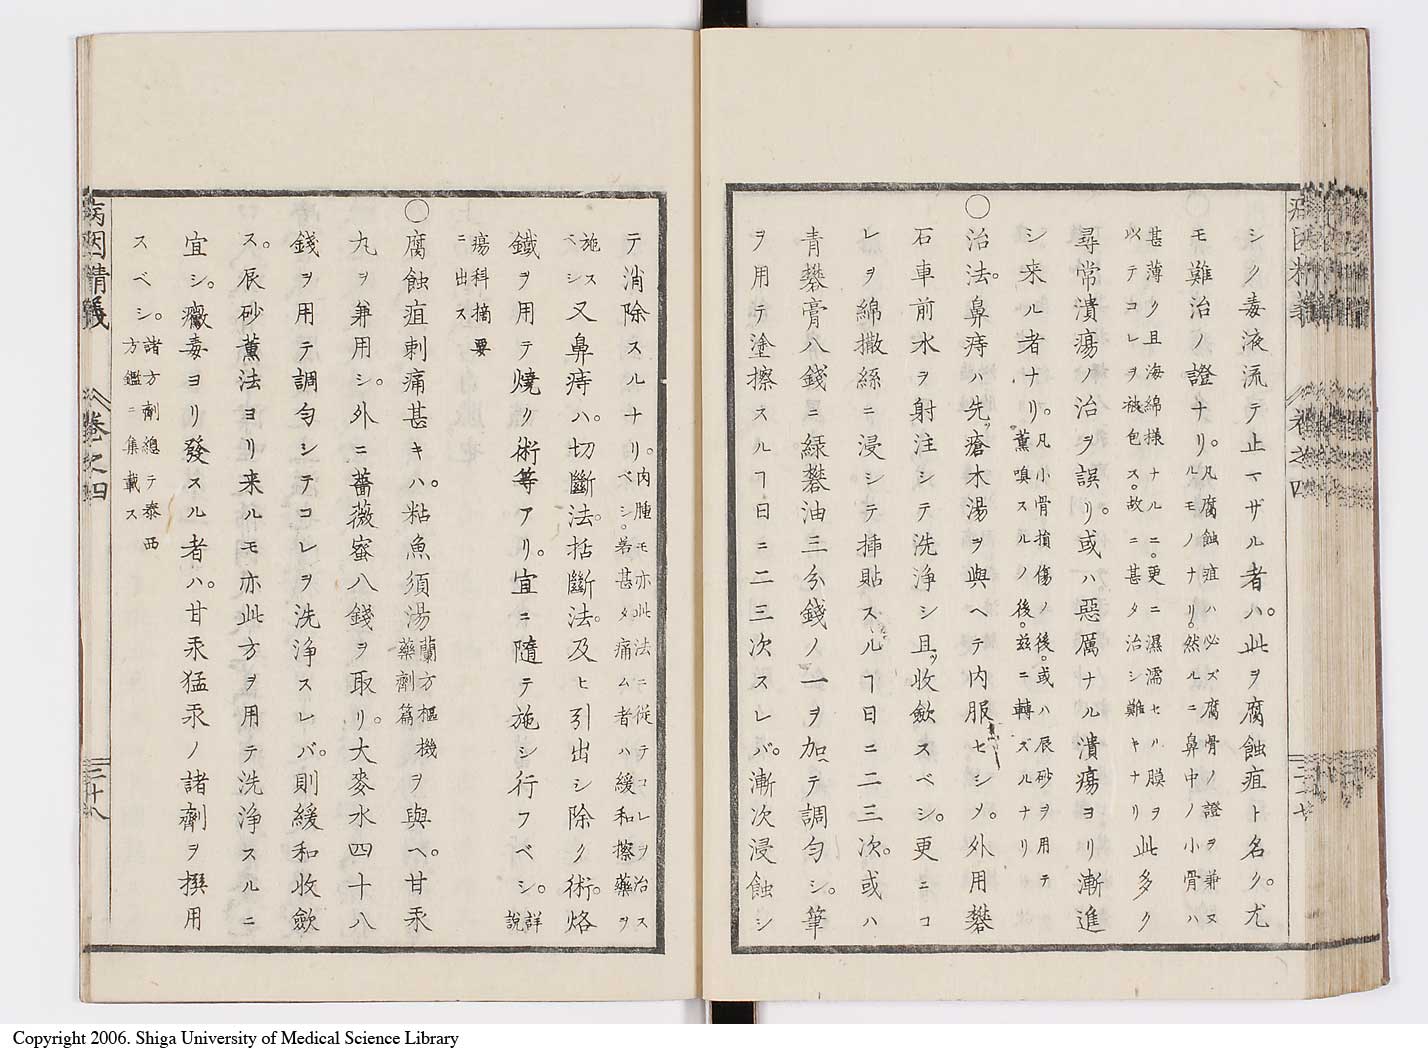 シク毒液流テ止マザル者ハ。此ヲ腐蝕疽ト名ク。尤
モ難治ノ證ナリ。凡腐蝕疽ハ必ズ腐骨ノ證ヲ兼又
ルモノナリ。然ルニ鼻中ノ小骨ハ
甚薄ク且海綿様ナルニ。更ニ濕濡セル膜ヲ
以テコレヲ被包ス。故ニ甚タ治シ難キナリ此多ク
尋常潰瘍ノ治ヲ誤リ。或ハ惡厲ナル潰瘍ヨリ漸進
シ来ル者ナリ。凡小骨損傷ノ後。或ハ辰砂ヲ用テ
薫嗅スルノ後。玆ニ轉ズルナリ
〇治法。鼻痔ハ先ッ瘡木湯ヲ與ヘテ内服セシメ。外用礬
石車前水ヲ射注シテ洗浄シ且ッ收歛スベシ。更ニコ
レヲ綿撒絲ニ浸シテ挿貼スルヿ日ニ二三次。或ハ
青礬膏八錢ニ緑礬油三分錢ノ一ヲ加ヘテ調勻シ。筆
ヲ用テ塗擦スルヿ日ニ二三次スレバ。漸次浸蝕シ
病因精義
巻之四
二十七
テ消除スルナリ。内腫モ亦此法ニ従テコレヲ治ス
ベシ。若甚タ痛ム者ハ緩和擦藥ヲ
施ス
ベシ又鼻痔ハ。切斷法。括斷法。及ヒ引出シ除ク術。烙
鐵ヲ用テ燒ク術等アリ。宜ニ隨テ施シ行フベシ。詳
説
瘍科摘要
ニ出ス
〇腐蝕疽刺痛甚キハ。粘魚須湯蘭方樞機
藥劑篇ヲ與ヘ。甘汞
丸ヲ兼用シ。外ニ薔薇蜜八錢ヲ取リ。大麥水四十八
錢ヲ用テ調勻シテコレヲ洗浄スレバ。則緩和收歛
ス。辰砂薫法ヨリ来ルモ亦此方ヲ用テ洗浄スルニ
宜シ。黴毒ヨリ發スル者ハ。甘汞猛汞ノ諸劑ヲ撰用
スベシ。諸方劑總テ泰西
方鑑ニ集載ス
病因精義
巻之四
二十八
Copyright 2006. Shiga University of Medical Science Library